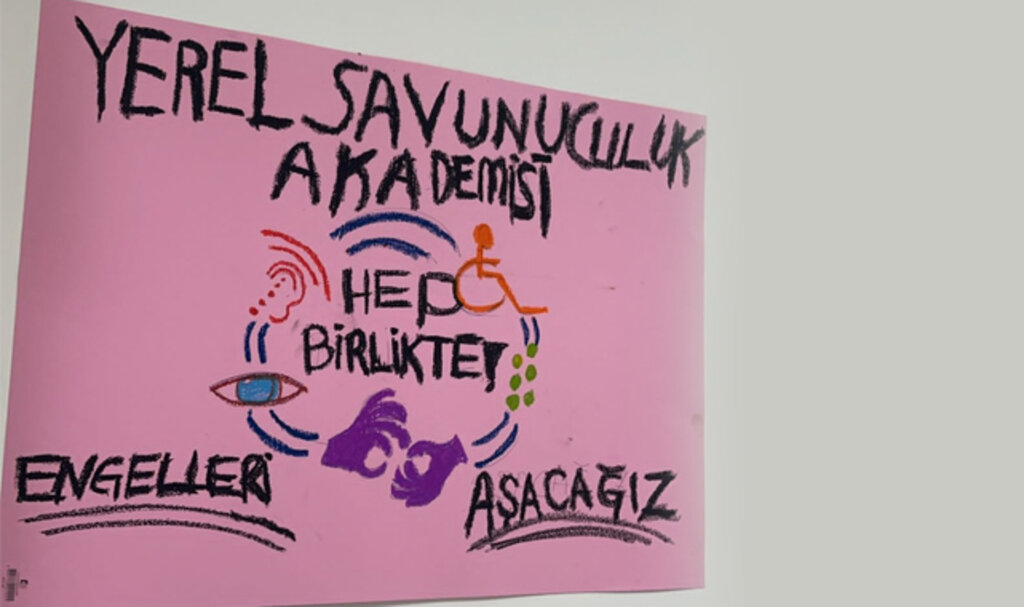 YEREL SAVUNUCULUK
AKADEMİSİ
HEP
BİRLİKTE!
ENGELLERİ AŞACAĞIZ